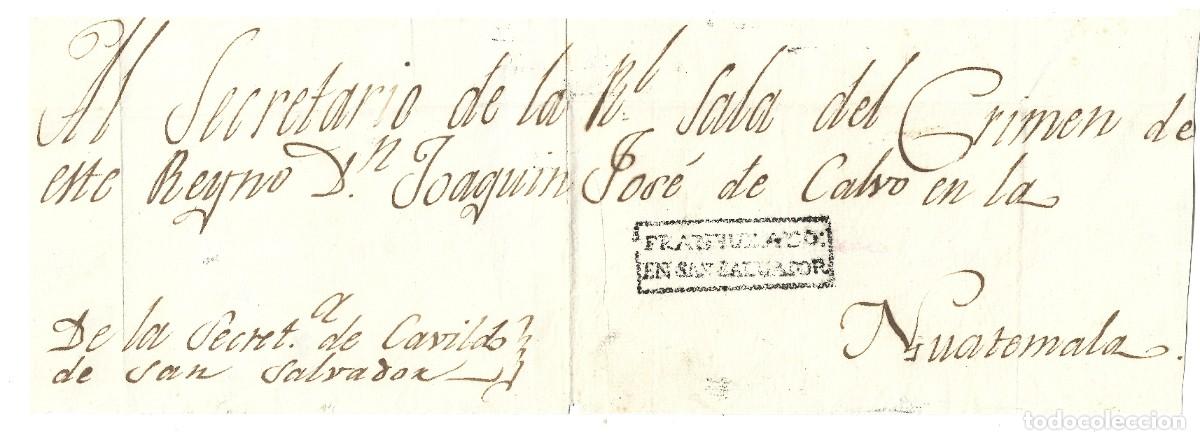 Al Secretario de la Rˡ. Sala del Crimen de
este Reyno D.ⁿ Joaquin José de Calvo en la
FRANQUEADO:
EN SAN SALVADOR
Nuatemala.
De la Secret.ᵃ de Cavildo
de San Salvador
todocoleccion